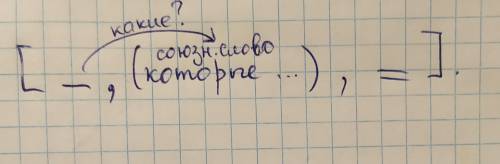 какие?
союзн. слово
[ _ , (которые ...) , = ].